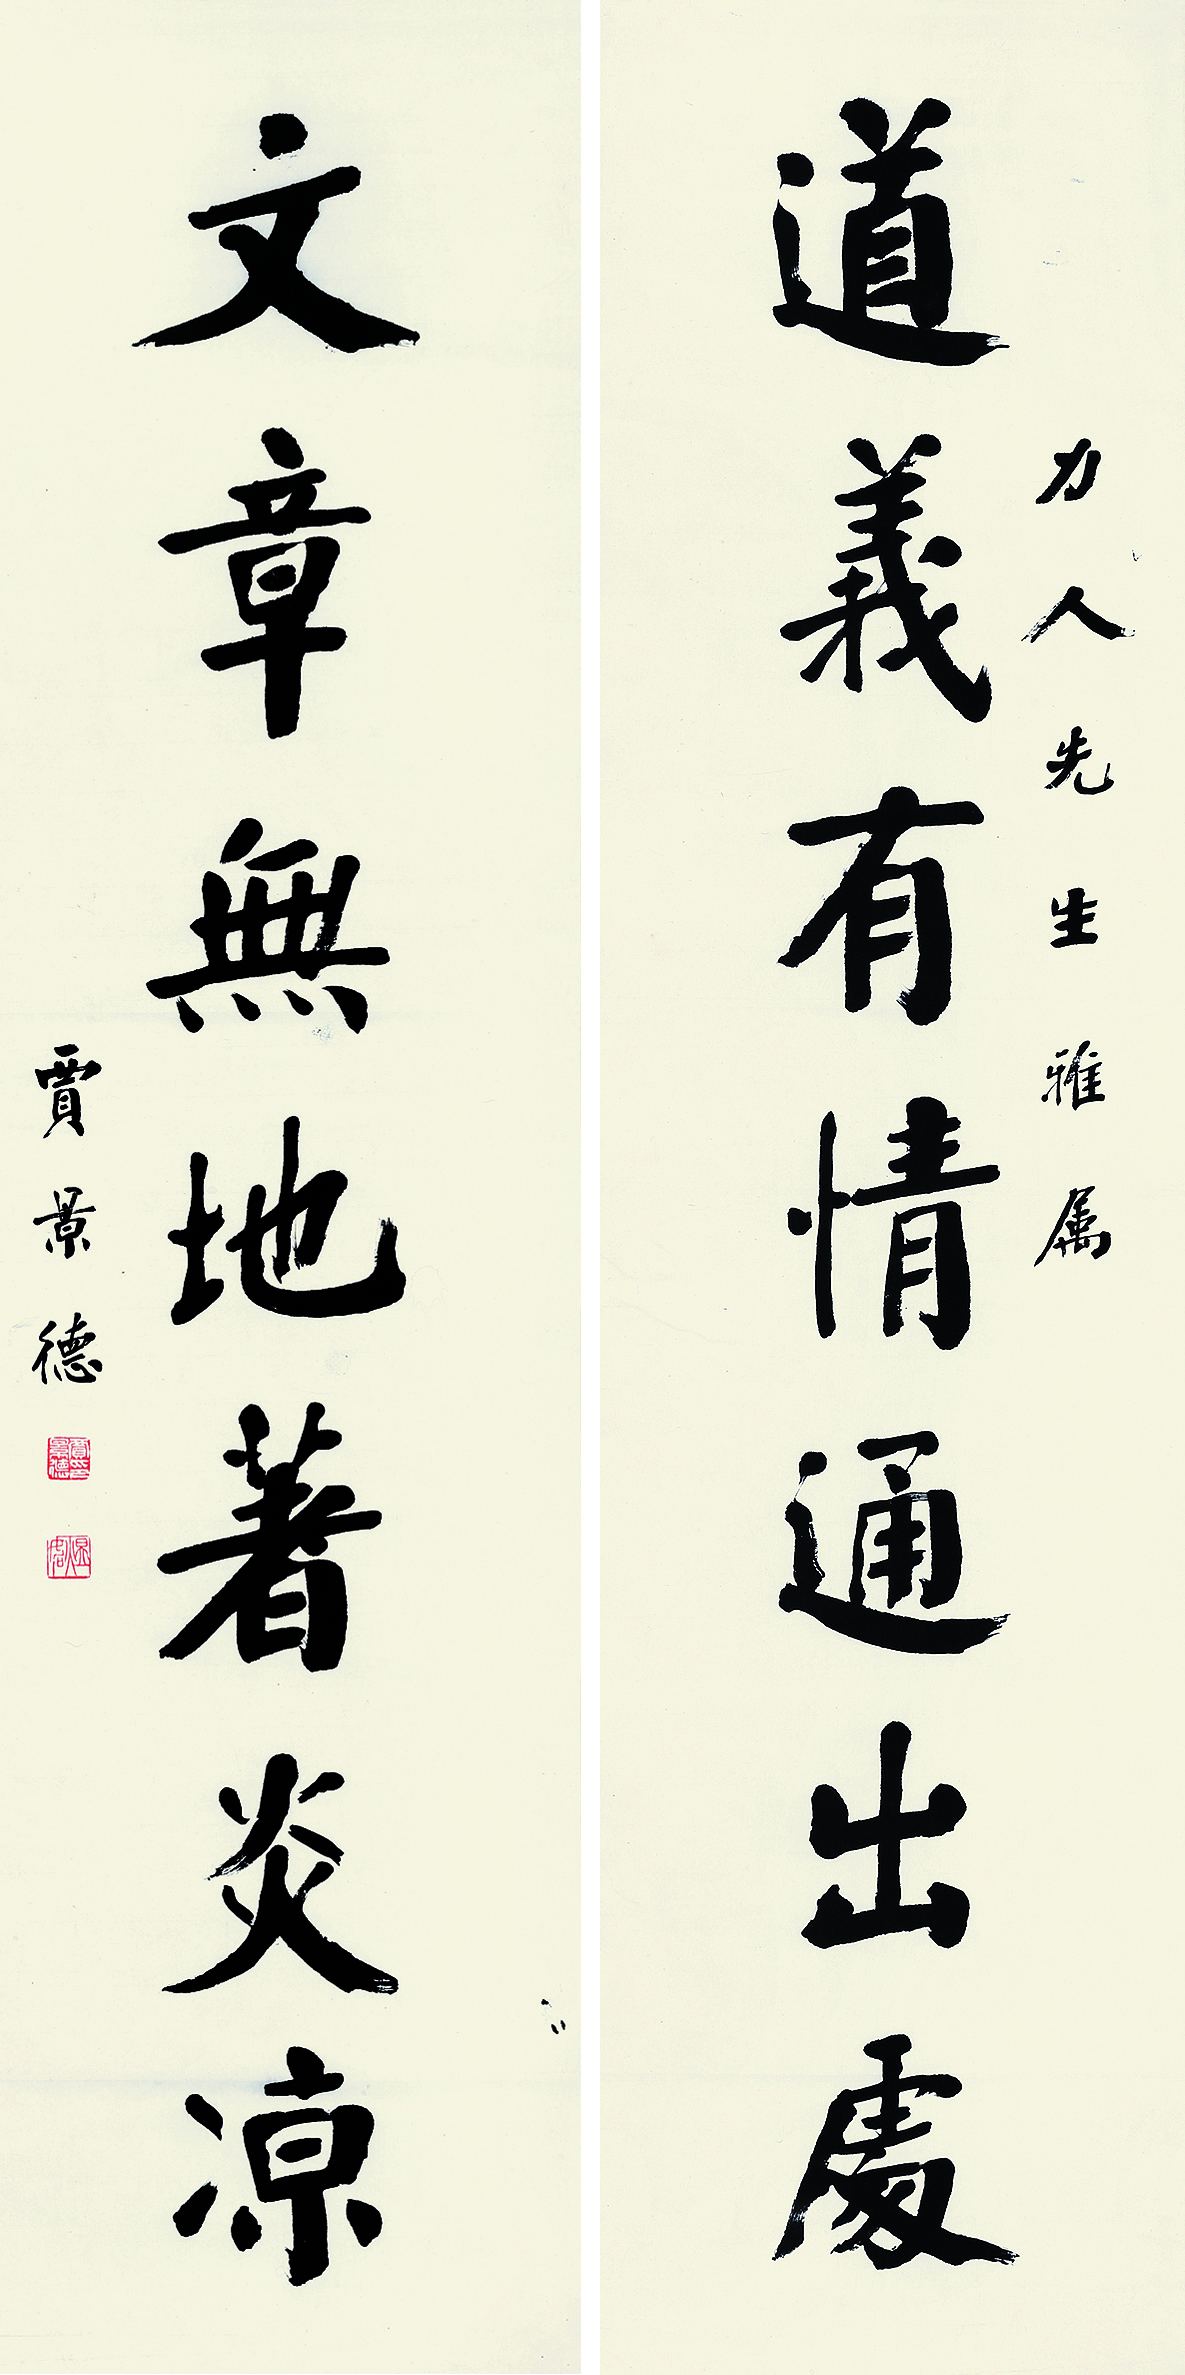 力人先生雅属
道義有情通出處
文章無地著炎凉
賈景德